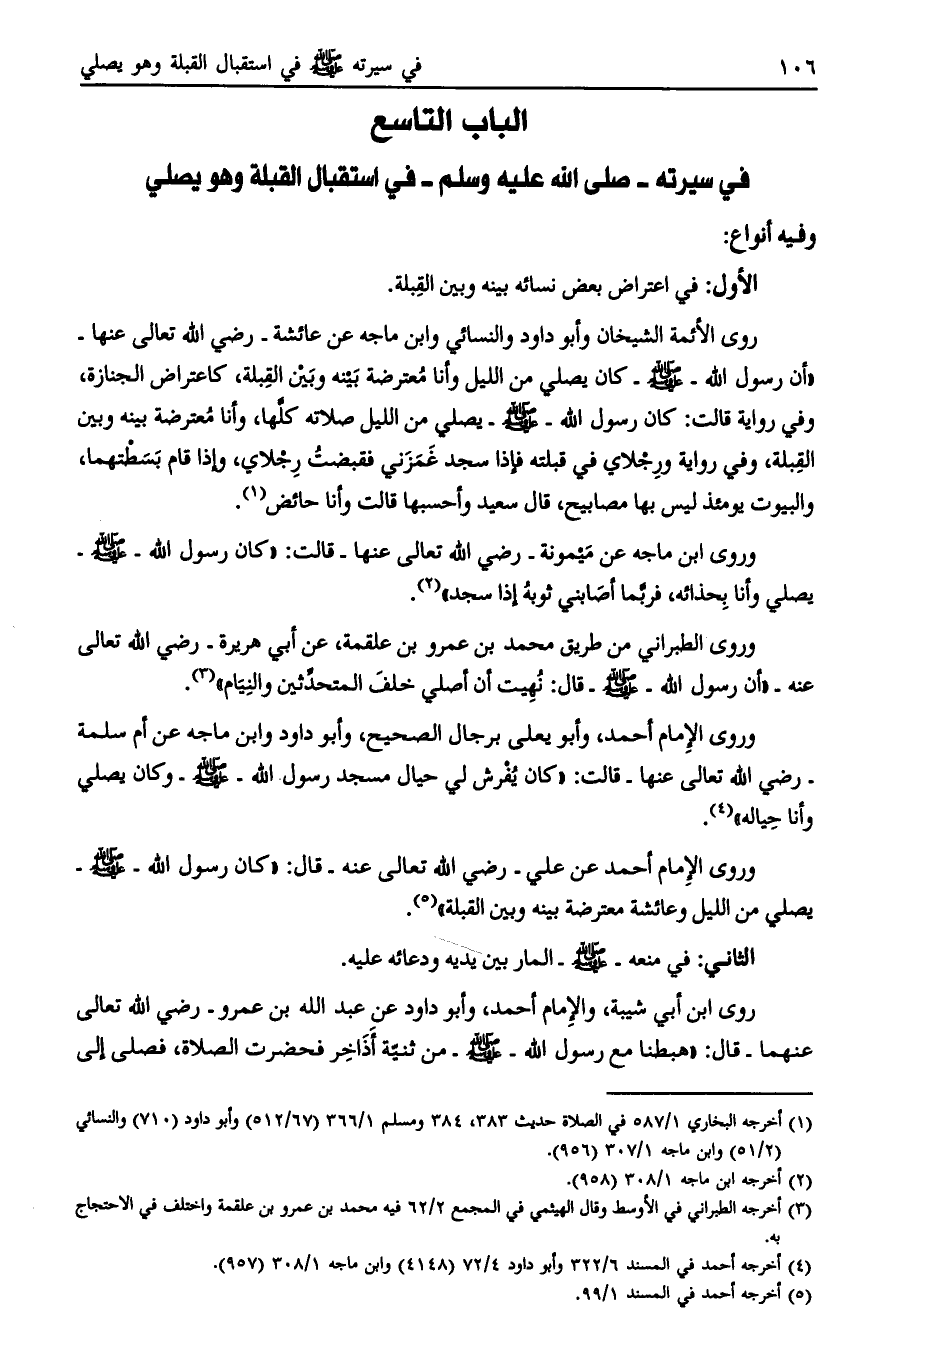 ١٠٦
في سيرته ﷺ في استقبال القبلة وهو يصلي
الباب التاسع
في سيرته ـ صلى الله عليه وسلم ـ في استقبال القبلة وهو يصلي
وفيه أنواع:
الأول: في اعتراض بعض نسائه بينه وبين القِبلة.
روى الأئمة الشيخان وأبو داود والنسائي وابن ماجه عن عائشة ـ رضي الله تعالى عنها ـ
«أن رسول الله ـ ﷺ ـ كان يصلي من الليل وأنا مُعترضة بَيْنه وبَيْن القِبلة، كاعتراض الجنازة،
وفي رواية قالت: كان رسول الله ـ ﷺ ـ يصلي من الليل صلاته كلَّها، وأنا مُعترضة بينه وبين
القِبلة، وفي رواية ورِجلاي في قبلته فإذا سجد غَمَزَني فقبضتُ رِجْلاي، وإذا قام بَسَطْتهما،
والبيوت يومئذ ليس بها مصابيح، قال سعيد وأحسبها قالت وأنا حائض(١).
وروى ابن ماجه عن مَيْمونة ـ رضي الله تعالى عنها ـ قالت: «كان رسول الله ـ ﷺ ـ
يصلي وأنا بِحذائه، فربَّما أصَابني ثوبهُ إذا سجد»(٢).
وروى الطبراني من طريق محمد بن عمرو بن علقمة، عن أبي هريرة ـ رضي الله تعالى
عنه ـ «أن رسول الله ـ ﷺ ـ قال: نُهِيت أن أصلي خلفَ المتحدِّثين والنِيَام»(٣).
وروى الإِمام أحمد، وأبو يعلى برجال الصحيح، وأبو داود وابن ماجه عن أم سلمة
ـ رضي الله تعالى عنها ـ قالت: «كان يُفْرش لي حيال مسجد رسول الله ـ ﷺ ـ وكان يصلي
وأنا حِياله»(٤).
وروى الإِمام أحمد عن علي ـ رضي الله تعالى عنه ـ قال: «كان رسول الله ـ ﷺ ـ
يصلي من الليل وعائشة معترضة بينه وبين القبلة»(٥).
الثاني: في منعه ـ ﷺ ـ المار بين يديه ودعائه عليه.
روى ابن أبي شيبة، والإِمام أحمد، وأبو داود عن عبد الله بن عمرو ـ رضي الله تعالى
عنهما ـ قال: «هبطنا مع رسول الله ـ ﷺ ـ من ثنيّة أَذَاخِر فحضرت الصلاة، فصلى إلى
(١) أخرجه البخاري ٥٨٧/١ في الصلاة حديث ٣٨٣، ٣٨٤ ومسلم ٣٦٦/١ (٥١٢/٦٧) وأبو داود (٧١٠) والنسائي
(٥١/٢) وابن ماجه ٣٠٧/١ (٩٥٦).
(٢) أخرجه ابن ماجه ٣٠٨/١ (٩٥٨).
(٣) أخرجه الطبراني في الأوسط وقال الهيثمي في المجمع ٦٢/٢ فيه محمد بن عمرو بن علقمة واختلف في الاحتجاج
به.
(٤) أخرجه أحمد في المسند ٣٢٢/٦ وأبو داود ٧٢/٤ (٤١٤٨) وابن ماجه ٣٠٨/١ (٩٥٧).
(٥) أخرجه أحمد في المسند ٩٩/١.